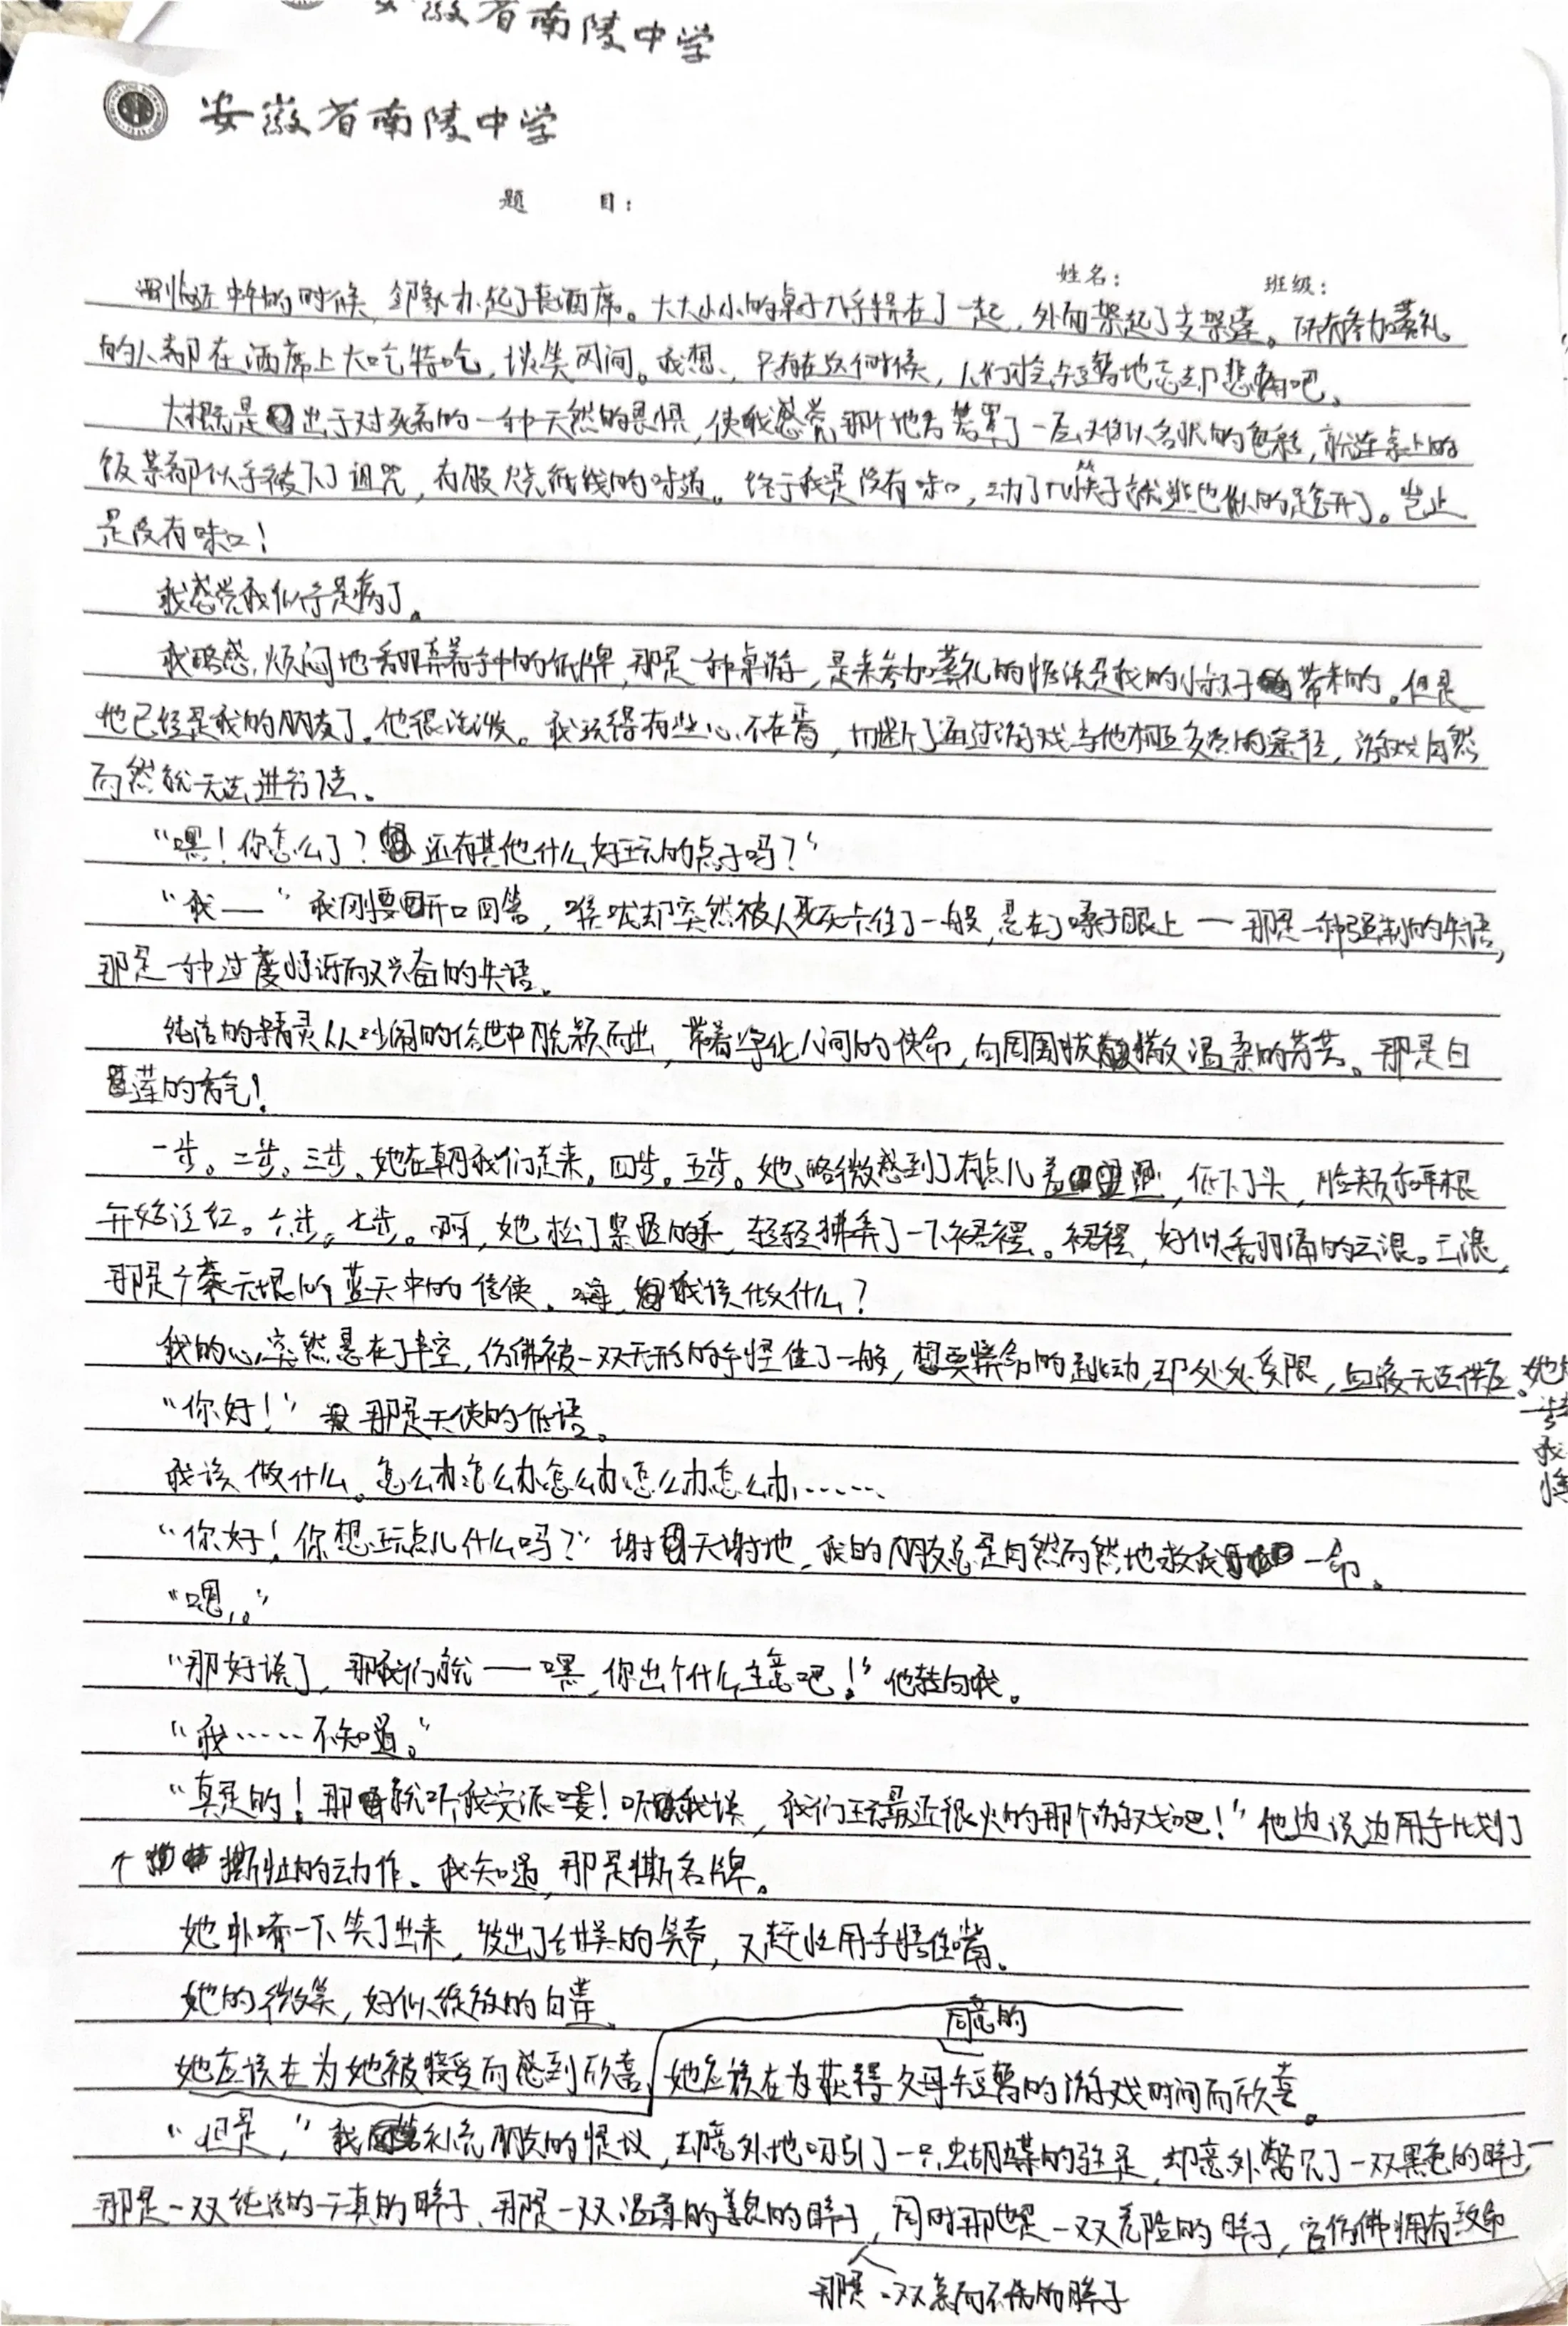 安徽省南陵中学
安徽省南陵中学
题 目：
姓名： 班级：
临近中午的时候，邻家办起了丧酒席。大大小小的桌子几乎挤在了一起，外面架起了支架篷。所有参加葬礼
的人都在酒席上大吃特吃，谈笑风间。我想，只有在这个时候，人们才会短暂地忘却悲痛吧。
大概是出于对死者的一种天然的畏惧，使我感觉那个地方笼罩了一层难以名状的色彩，就连桌上的
饭菜都似乎被下了诅咒，有股烧纸钱的味道。终于我是没有味口，动了几筷子就逃也似的跑开了。岂止
是没有味口！
我感觉我似乎是病了。
我略感烦闷地看眼幕着手中的纸牌，那是一种桌游，是来参加葬礼的据说是我的小叔子带来的。但是
他已经是我的朋友了。他很活泼。我玩得有些心不在焉，切断了通过游戏与他相互交流的途径，游戏自然
而然就无法进行了。
“嘿！你怎么了？还有其他什么好玩的点子吗？”
“我——”我刚要开口回答，喉咙却突然被人死死卡住了一般，悬在了嗓子眼上——那是一种强制的失语，
那是一种过度惊讶而又兴奋的失语。
纯洁的精灵从吵闹的俗世中脱颖而出，带着净化人间的使命，向周围拔撒温柔的芳芳。那是白
莲的香气！
一步。二步。三步。她在朝我们走来。四步。五步。她略微感到了有点儿羞，低下了头，脸颊亦耳根
开始泛红。六步。七步。啊，她松了紧握的手，轻轻拂弄了一下裙摆。裙摆，好似汹涌的云浪。云浪，
那是个无垠的蓝天中的信使。嗨，我该做什么？
我的心突然悬在了半空，仿佛被一双无形的手怪住了一般，想要拼命的跳动，却处处受限，血液无法供应。她
“你好！”那是天使的低语。
我该做什么。怎么办怎么办怎么办怎么办怎么办……
“你好！你想玩点儿什么吗？”谢天谢地，我的朋友总是自然而然地救我一命。
“嗯。”
“那好说了，那我们就——嘿，你出个什么主意吧！”他转向我。
“我……不知道。”
“真是的！那就听我安派喽！听我说，我们玩最近很火的那个游戏吧！”他边说边用手比划了
个撕扯的动作。我知道，那是撕名牌。
她扑嗤一下笑了出来，发出了甜美的笑声，又赶忙用手捂住嘴。
她的微笑，好似绽放的白莲。
同意的
她应该在为她被接受而感到欣喜，她应该在为获得父母短暂的游戏时间而欣喜。
“但是，”我补充朋友的提议，却意外地吸引了一只蝴蝶的驻足，却意外瞥见了一双黑色的眸子—
那是一双纯洁的天真的眸子、那是一双温尊的善良的眸子，同时那也是一双危险的眸子，它仿佛拥有致命
那是一双哀而不伤的眸子